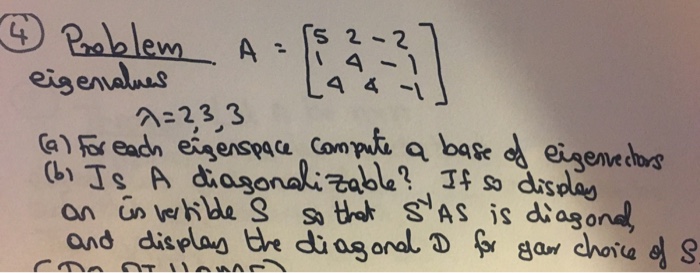 ④ Problem A = [5 2 -2
1 4 -1
4 4 -1]
eigenvalues
λ=2,3,3
(a) For each eigenspace compute a base of eigenvectors
(b) Is A diagonalizable? If so display
an invertible S so that S⁻¹AS is diagonal,
and display the diagonal D for your choice of S